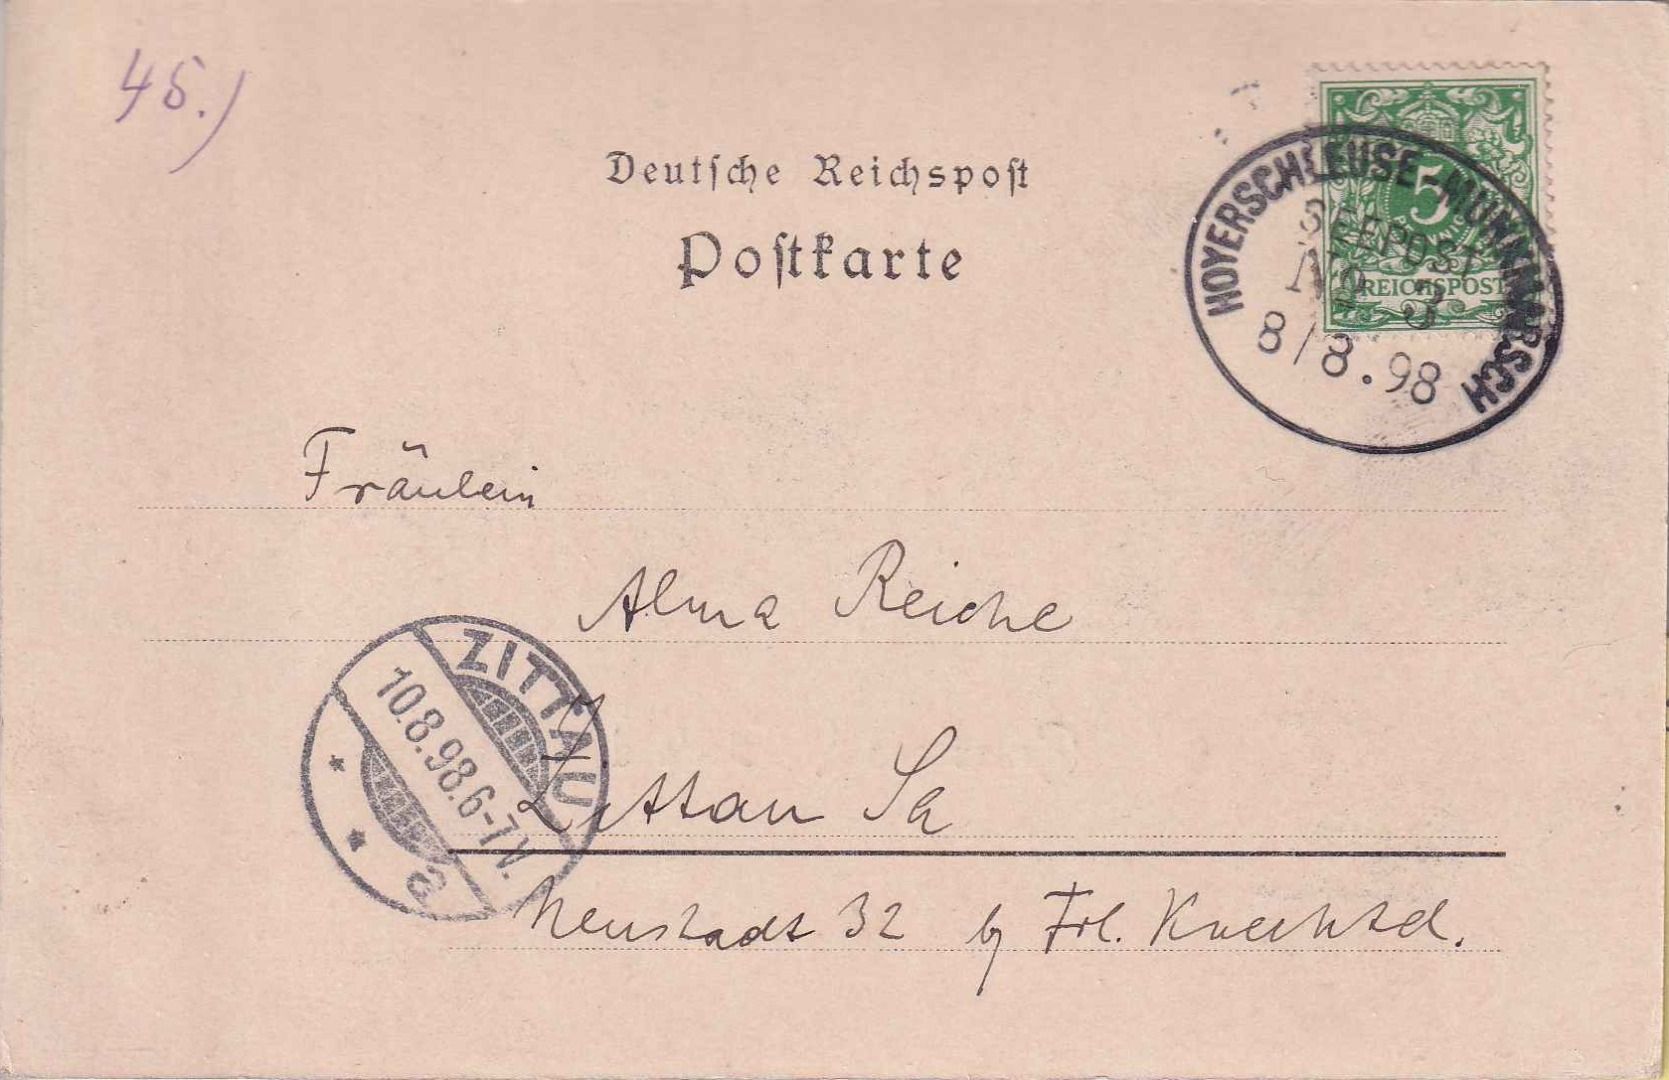 45.)
Deutſche Reichspoſt
Poſtkarte
5
PFENNIG
REICHSPOST
HOYERSCHLEUSE-MUNKMARSCH
SEEPOST
No 3
8/8.98
Fräulein
Alma Reiche
ZITTAU
10.8.98.6-7V.
* *
a
Zittau Sa
Neustadt 32 by Frl.